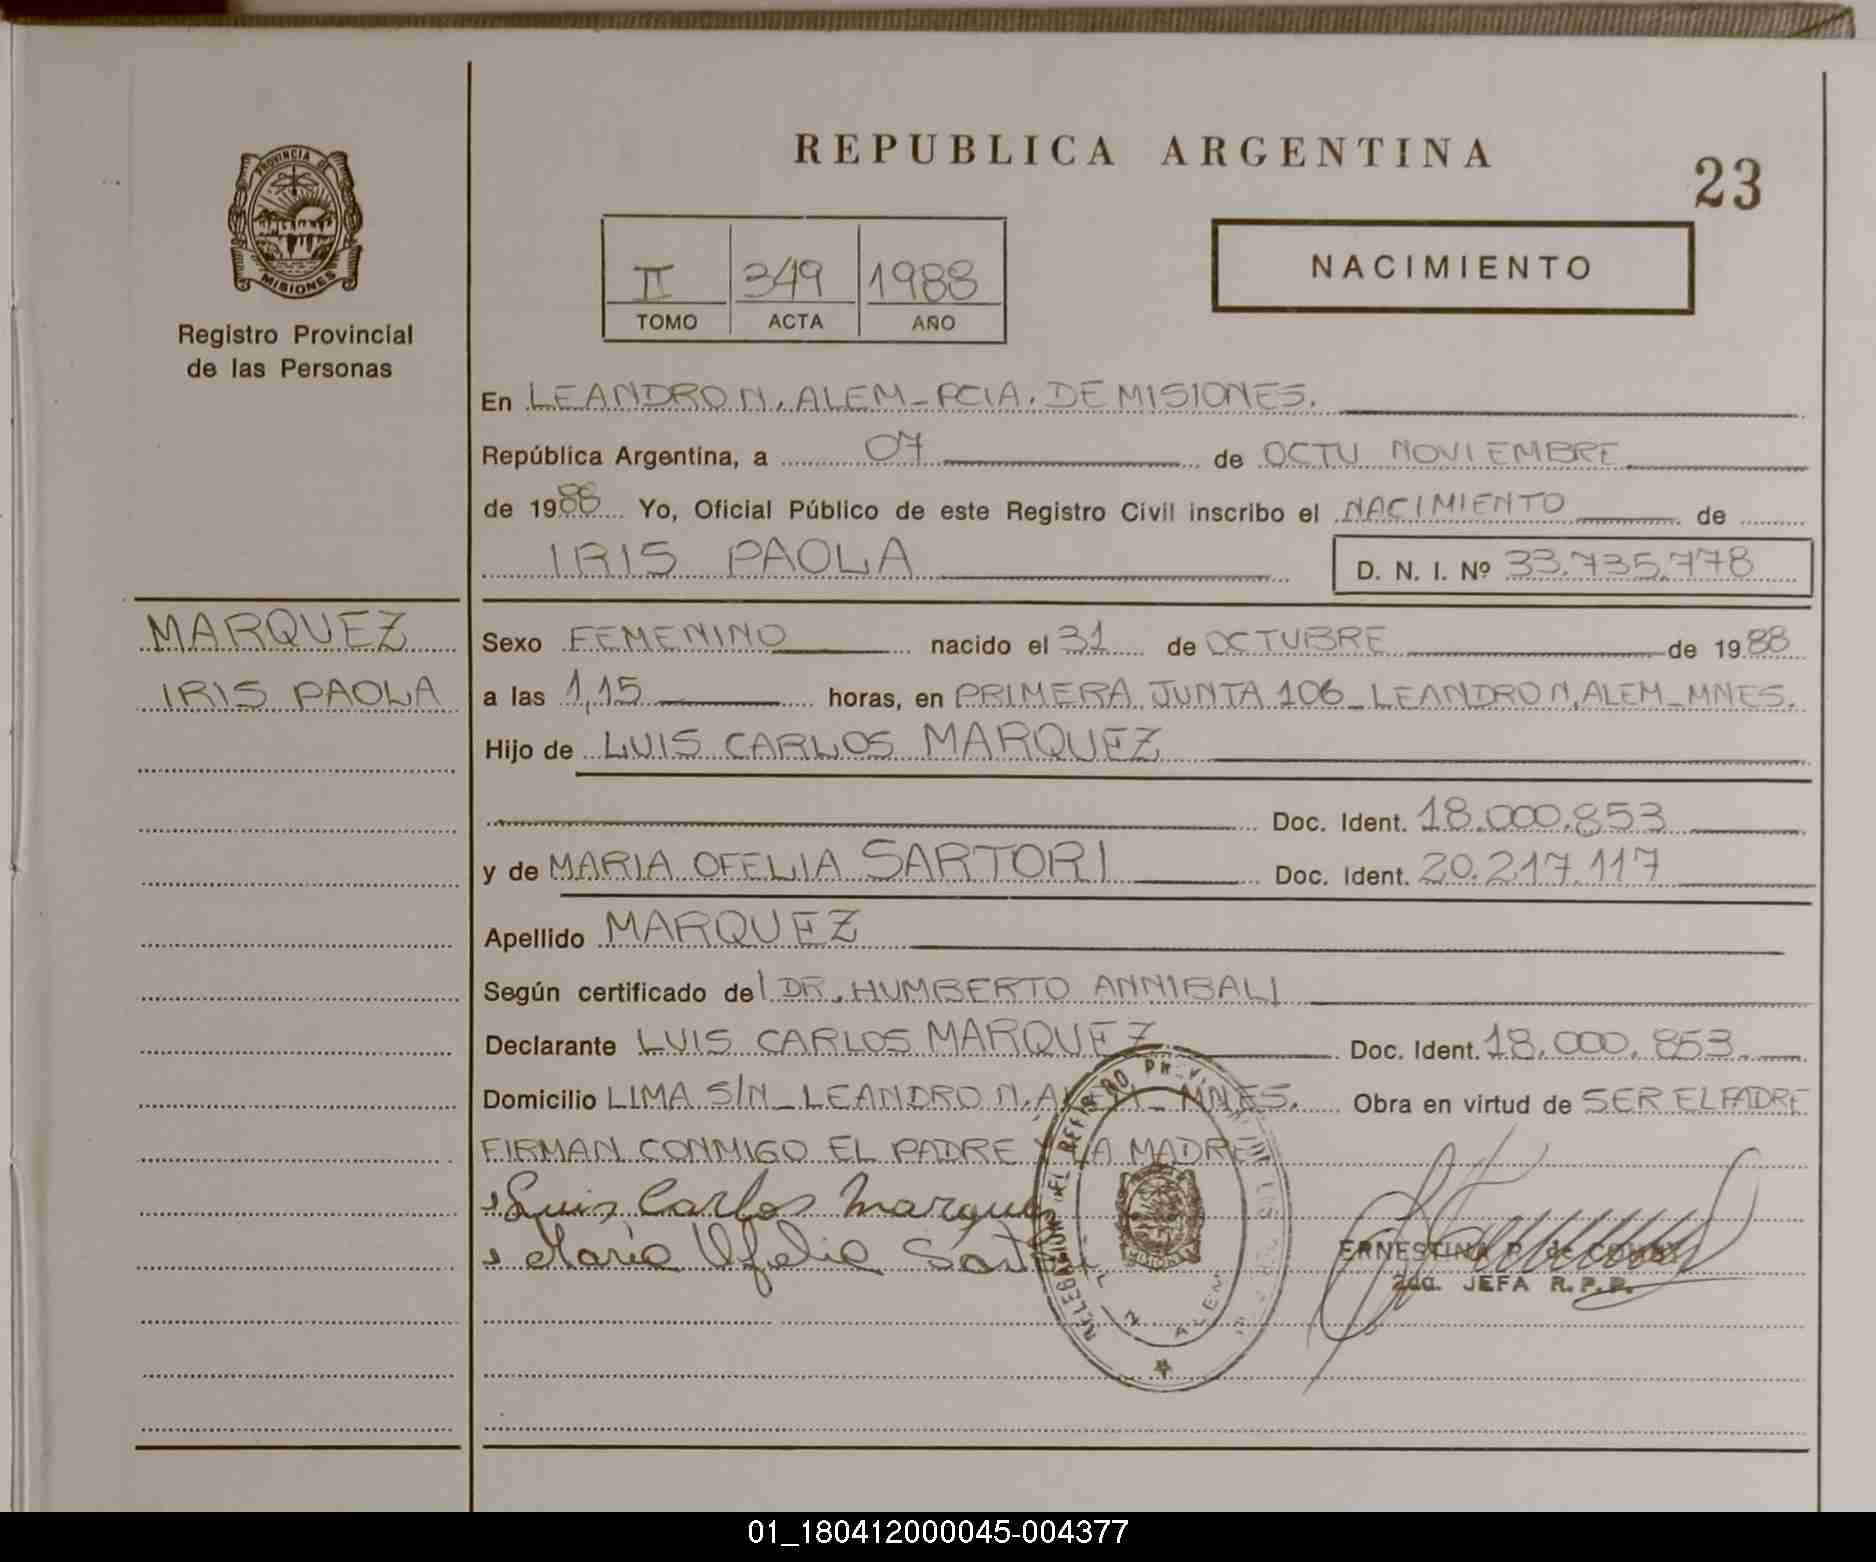 REPUBLICA ARGENTINA
23
PROVINCIA DE
MISIONES
Registro Provincial
de las Personas
II 349 1988
TOMO ACTA AÑO
NACIMIENTO
En LEANDRO N. ALEM - PCIA. DE MISIONES.
República Argentina, a 07 de OCTU NOVIEMBRE
de 1988 Yo, Oficial Público de este Registro Civil inscribo el NACIMIENTO de
IRIS PAOLA D. N. I. Nº 33.735.778
MARQUEZ
IRIS PAOLA
Sexo FEMENINO nacido el 31 de OCTUBRE de 1988
a las 1,15 horas, en PRIMERA JUNTA 106 - LEANDRO N. ALEM - MNES.
Hijo de LUIS CARLOS MARQUEZ
Doc. Ident. 18.000.853
y de MARIA OFELIA SARTORI Doc. Ident. 20.217.117
Apellido MARQUEZ
Según certificado del DR. HUMBERTO ANNIBALI
Declarante LUIS CARLOS MARQUEZ Doc. Ident. 18.000.853
Domicilio LIMA S/N - LEANDRO N. ALEM - MNES. Obra en virtud de SER EL PADRE
FIRMAN CONMIGO EL PADRE Y LA MADRE
Luis Carlos Marquez
Maria Ofelia Sartori
ERNESTINA P. de
2da. JEFA R.P.P.
N ALEM
01_180412000045-004377